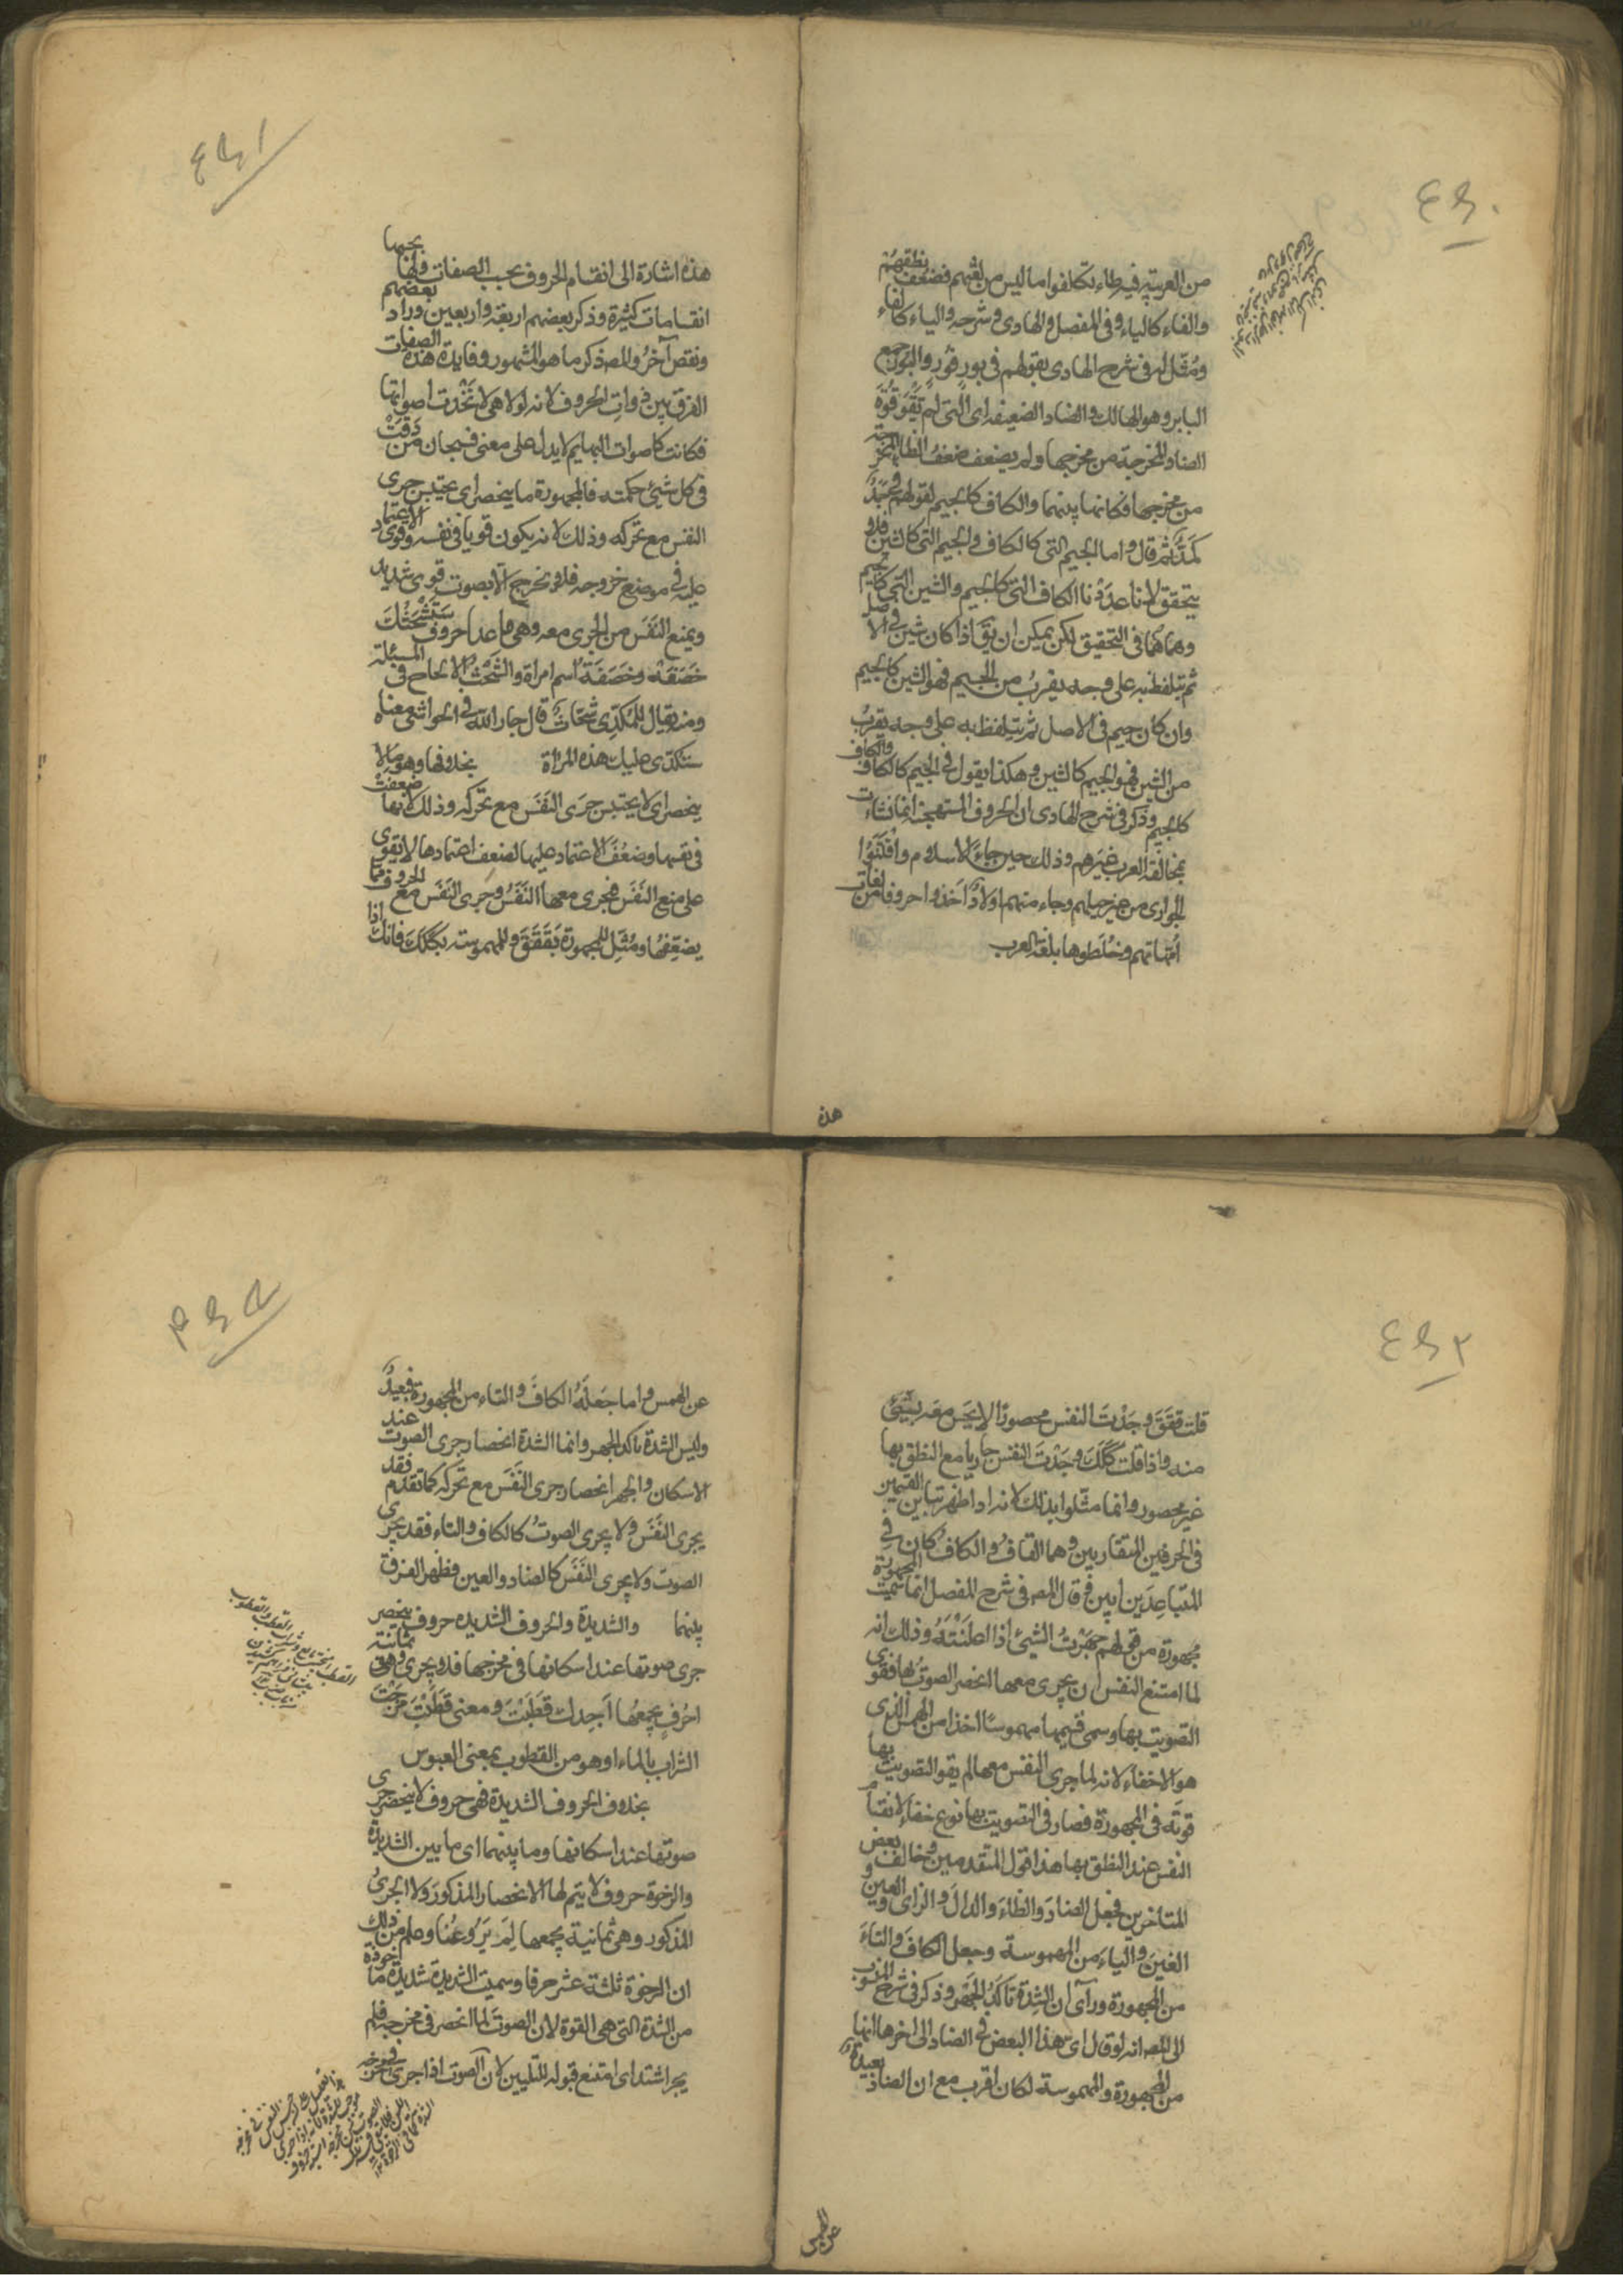 ٤٥٠
من العربية فيه طاء تكلفوا ما ليس من لغتهم فضعف نطقهم
والفاء كالباء وفى المفصل والهادى وشرحه والباء كالفاء
ومُثّل له فى شرح الهادى بقولهم فى بور فور والبور جمع
الباير وهو الهالك والضاد الضعيفه اى التى لم تَقْوَ قُوَّةَ
الضاد المخرجة من مخرجها ولم يضعف ضعفَ الظاء المخرجة
من مخرجها فكانها بينهما والكاف كالجيم لقولهم
ثم قال واما الجيم التى كالكاف والجيم التى كالشين فلا
يتحقق لانا عددنا الكاف التى كالجيم والشين التى كالجيم
وهما هما فى التحقيق لكن يمكن ان يقَ اذا كان شين فى الاصل
ثم يتلفظ به على وجه يقربُ من الجيم فهو الشين كالجيم
وان كان جيم فى الاصل ثم يتلفظ به على وجه يقربُ
من الشين فهو الجيم كالشين وهكذا يقول فى الجيم كالكاف والكاف
كالجيم وذكر فى شرح الهادى ان الحروف المستهجنة انما نشات
بمخالفة العرب غيرهم وذلك حين جاء الاسلام واقتنَوا
الجوارى من غير جيلهم وجاء منهم اولادٌ اخذوا حروفا من لغات
اُمّهاتهم وخلَطوها بلغة العرب
هذه
٤٥١
هذه اشارة الى انقسام الحروف بحسب الصفات ولها بحسبها
انقسامات كثيرة وذكر بعضهم اربعة واربعين وزاد بعضهم
ونقص آخرُ والمصـ ذكر ما هو المشهور وفايدة هذه الصفات
الفرق بين ذوات الحروف لانه لولا هى لاتّحدت اصواتها
فكانت كاصوات البهايم لا يدل على معنى فسبحان من دَقّتْ
فى كل شئ حكمته فالمجهورة ما ينحصر اى يحتبس جرى
النفس مع تحركه وذلك لانه يكون قويا فى نفسه وقوى الاعتماد
عليه فى موضع خروجه فلا يخرج الا بصوت قوى شديد
ويمنع النَّفَس من الجرى معه وهى ما عدا حروف سَتَشْحَثُكَ
خَصَفَهْ وخَصَفَة اسم امراة والشَّحْثُ الالحاح فى المسئلة
ومنه يقال للمُكَدِّى شحّاث قال جار الله فى الحواشى معناه
ستكدّى عليك هذه المرأة بخلافها وهو ما لا
ينحصر اى لا يحتبس جرى النفَس مع تحركه وذلك لانها ضعفت
فى نفسها وضعُفَ الاعتماد عليها لضعف اعتمادها لا يقوى
على منع النفَس فيجرى معها النَّفَسُ وجرى النَّفَس مع الحروف مما
يضعّفها ومُثّل المجهورة بقَقَقَ والمهموسة بكَكَكَ فانك اذا
٤٥٢
قلت قَقَقَ وجدْتَ النفس محصورًا لا يحس معه بشئ
منه واذا قلت كَكَكَ وجدتَ النفس جاريا مع النطق بها
غير محصور وانما مثّلوا بذلك لانه اذا ظهر تباين القسمين
فى الحرفين المتقاربين وهما القاف والكاف كان فى
المتباعدَين ابين قال المصـ فى شرح المفصل انما سميت المجهورة
مجهورة من قولهم جهرْتُ الشئ اذا اعلنْتَه وذلك انه
لما امتنع النفس ان يجرى معها انحصر الصوتُ بها فقوى
التصويت بها وسمى قسيمها مهموسًا اخذا من الهمس الذى
هو الاخفاء لانه لما جرى النفس معها لم يقو التصويت بها
قوتَه فى المجهورة فصار فى التصويت بها نوع خفاء لانقسام
النفس عند النطق بها هذا قول المتقدمين وخالف بعض
المتاخرين فجعل الضادَ والظاءَ والذالَ والزاى والعين و
الغينَ والياءَ من المهموسة وجعل الكافَ والتاءَ
من المجهورة ورأى ان الشدة تاكّدُ الجَهر وذكر فى شرح المنسوب
الى المصـ انه لو قال اى هذا البعض فى الضاد الى اخرها انها
من المجهورة والمهموسة لكان اقرب مع ان الضاد بعيدة
عن الهمس
٤٥٣
عن الهمس واما جَعلُه الكافَ والتاء من المجهورة فبعيدٌ
وليس الشدة تاكد الجهر وانما الشدة انحصار جرى الصوت عند
الاسكان والجهر انحصار جرى النَّفَس مع تحركه كما تقدم فقد
يجرى النَّفَس ولا يجرى الصوتُ كالكاف والتاء وقد يجرى
الصوت ولا يجرى النَّفَس كالضاد والعين فظهر الفرق
بينهما والشديدة والحروف الشديده حروف ينحصر
جرى صوتها عند اسكانها فى مخرجها فلا يجرى وهى ثمانية
احرُفٍ يجمعُها اَجدك قطَبْتَ ومعنى قطَبْتَ مزجْتَ
الشراب بالماء او هو من القطوب بمعنى العبوس
بخلاف الحروف الشديدة فهى حروف لا ينحصر جرى
صوتها عند اسكانها وما بينهما اى ما بين الشديدة
والرخوة حروف لا يتم لها الانحصار المذكور ولا الجرىُ
المذكور وهى ثمانية يجمعها لِمَ يَرْوِعُنا وعلم من ذلك
ان الرخوة ثلثة عشر حرفا وسميت الشديدة شديدة ماخوذة
من الشدة التى هى القوة لان الصوت لما انحصر فى مخرجه فلم
يجر اشتد اى امتنع قبوله للتليين لان الصوت اذا جرى فى مخرجه